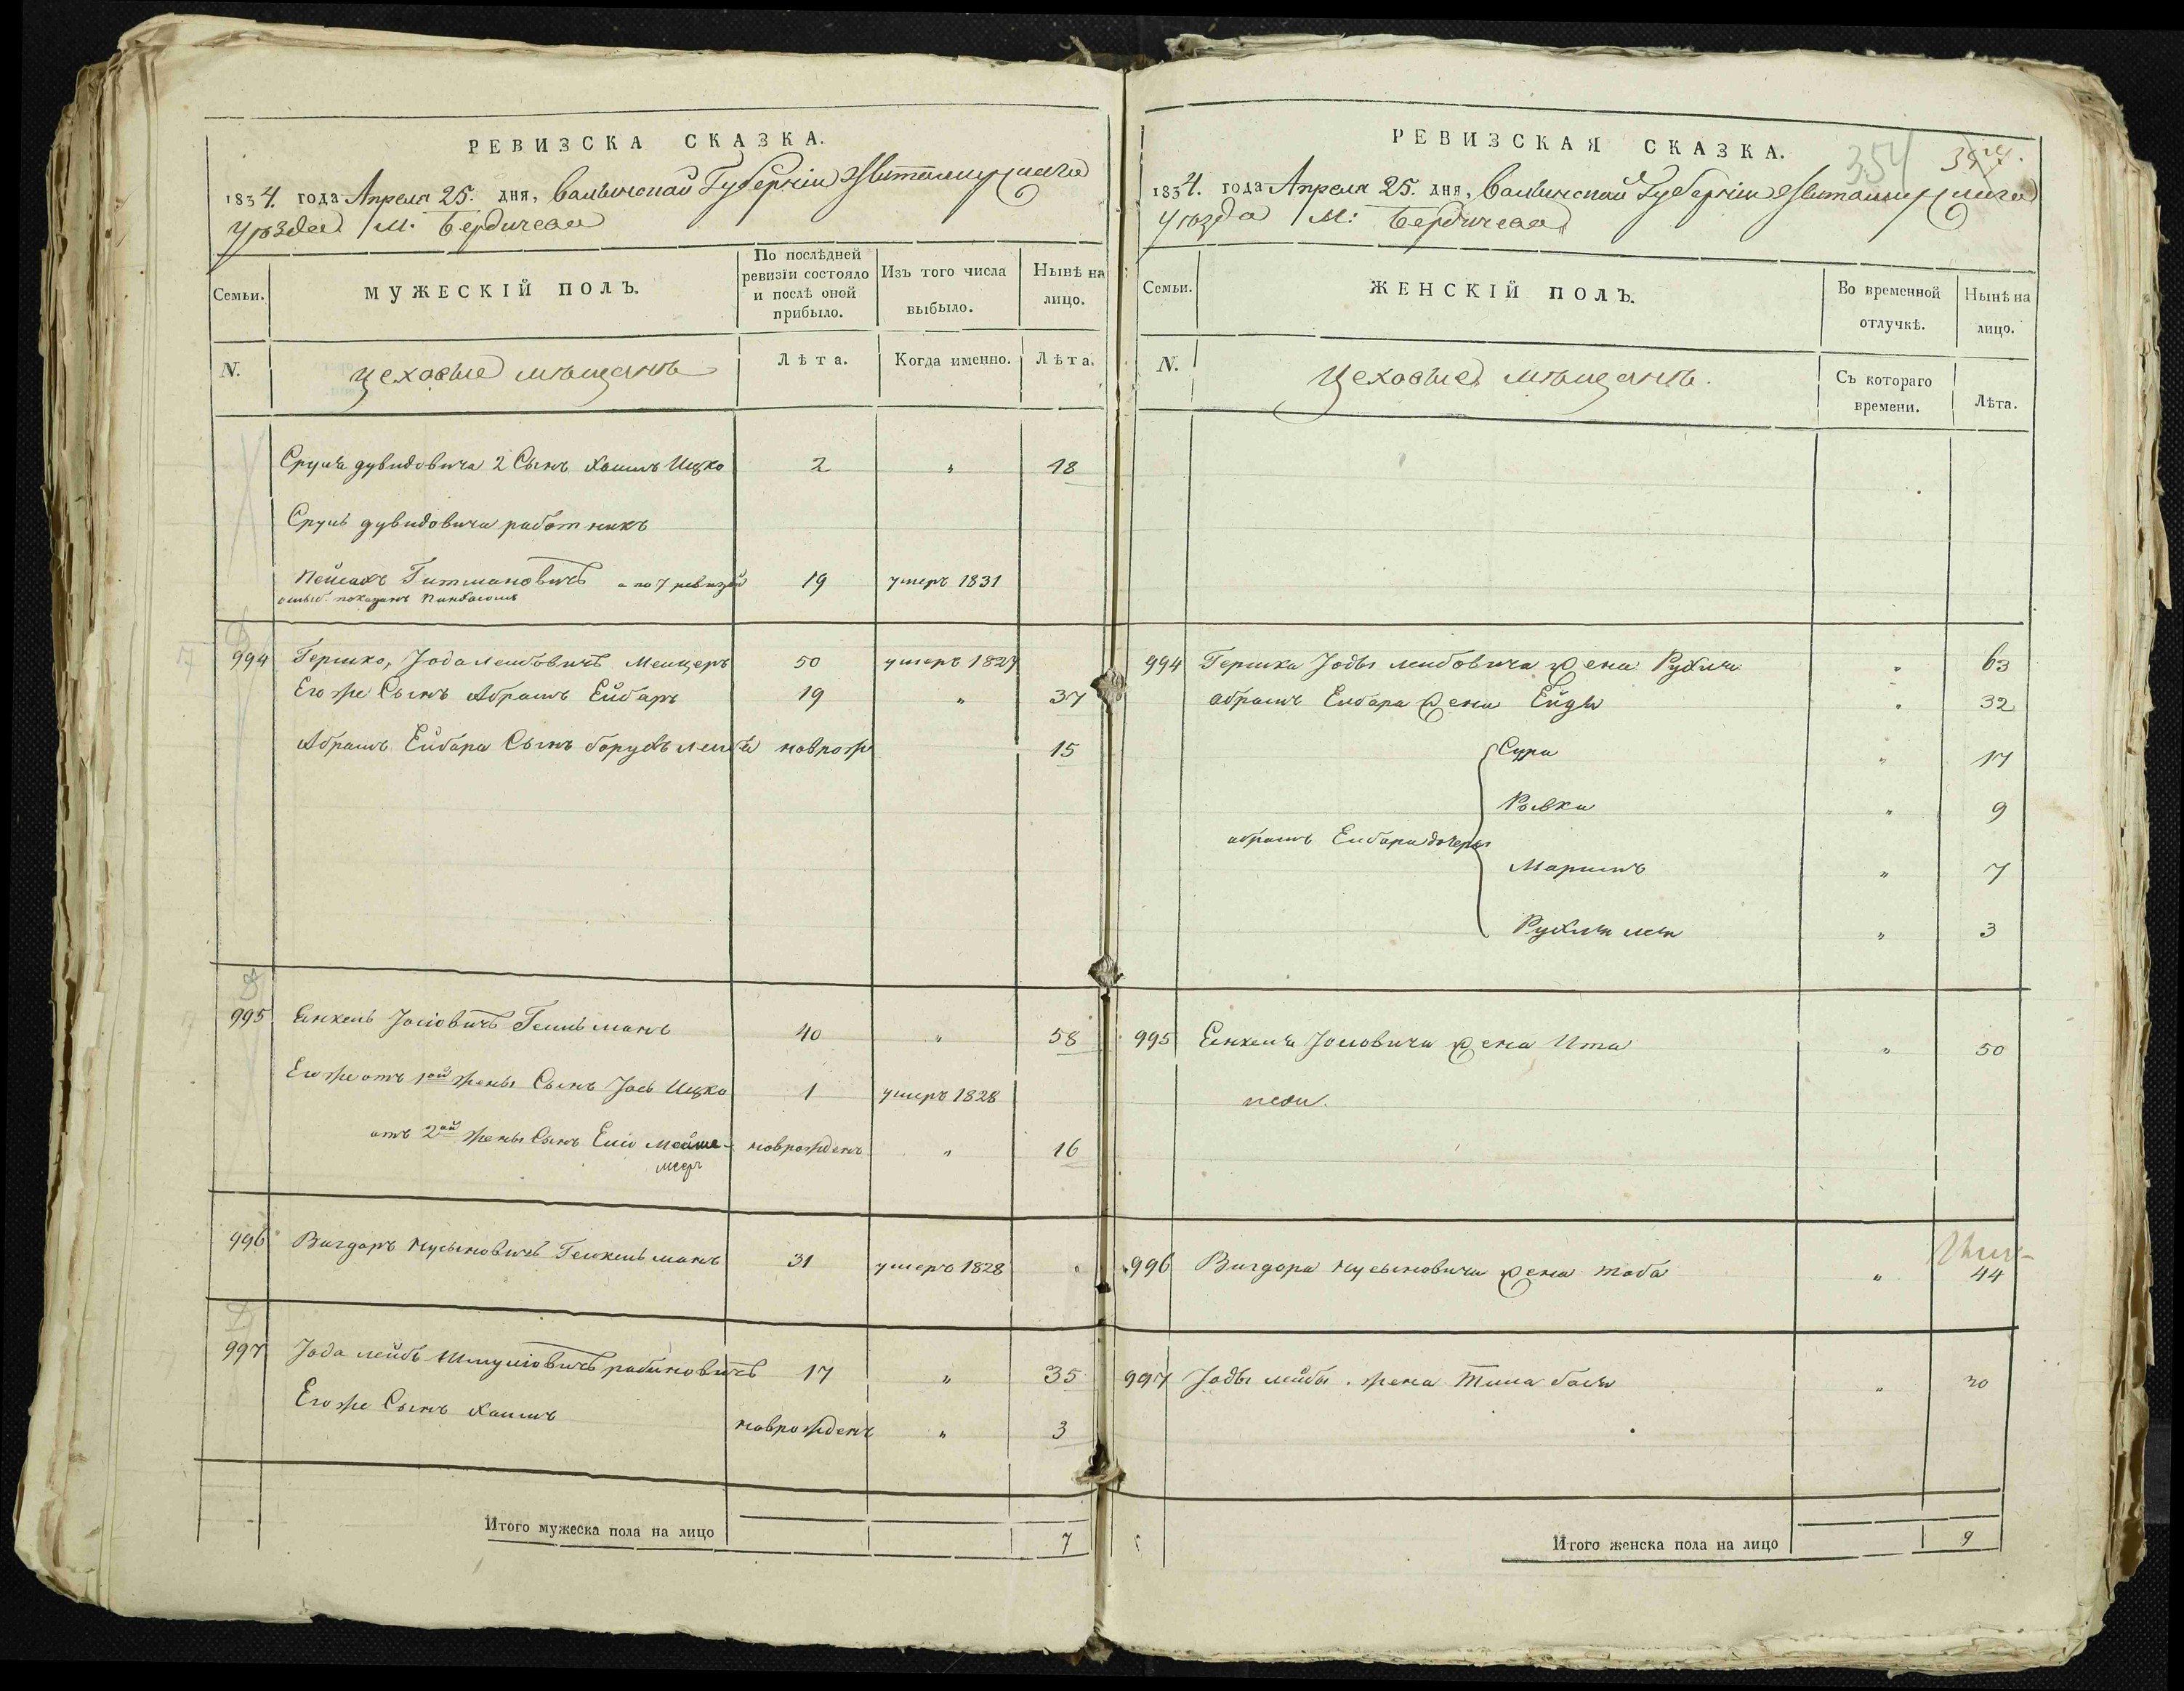 РЕВИЗСКА СКАЗКА.
1834. года Апреля 25. дня, Волынской Губернии Житомирскаго
Уѣзда М: Бердичева
Семьи.
МУЖЕСКІЙ ПОЛЪ.
По послѣдней ревизіи состояло и послѣ оной прибыло.
Изъ того числа выбыло.
Нынѣ на лицо.
N.
Цеховые мѣщанъ
Лѣта.
Когда именно.
Лѣта.
Сруля дувидовича 2 Сынъ Хаимъ Ицко 2 " 18
Сруль дувидовича работникъ
Пейсахъ Гитмановичъ а по 7 ревизій 19 умеръ 1831
ошиб. показанъ Пинхасомъ
994 Гершко, Јода Лейбовичъ Менцеръ 50 умеръ 1829
Егоже Сынъ Абрамъ Ейбаръ 19 " 37
Абрамъ Ейбара Сынъ борухъ новрож 15
995 Янкель Јосіовичъ 40 " 58
Егоже отъ 1ой жены Сынъ Јось Ицко 1 умеръ 1828
отъ 2ой жены Сынъ Еліо Мойше- новрожденъ " 16
меер
996 Вигдоръ Нусыновичъ 31 умеръ 1828
997 Јода лейбъ Шмуліовичъ рабиновичъ 17 " 35
Егоже Сынъ Хаимъ новрожденъ " 3
Итого мужеска пола на лицо 7
РЕВИЗСКАЯ СКАЗКА.
354
1834. года Апреля 25. дня, Волынской Губерніи Житомирскаго
Уѣзда М: Бердичева
Семьи.
ЖЕНСКІЙ ПОЛЪ.
Во временной отлучкѣ.
Нынѣ на лицо.
N.
Цеховые мѣщанъ.
Съ котораго времени.
Лѣта.
994 Гершка Јоды лейбовича Жена Рухля " 63
абрамъ Ейбара Жена Ейдя " 32
Сура " 17
Ривка " 9
абрамъ Ейбара дочеры
Маримъ " 7
Рухля лея " 3
995 Янкеля Јосіовича Жена Ита " 50
песи.
996 Вигдора Нусыновича Жена тоба " 44
997 Јоды лейбы. жена бася " 30
Итого женска пола на лицо 9